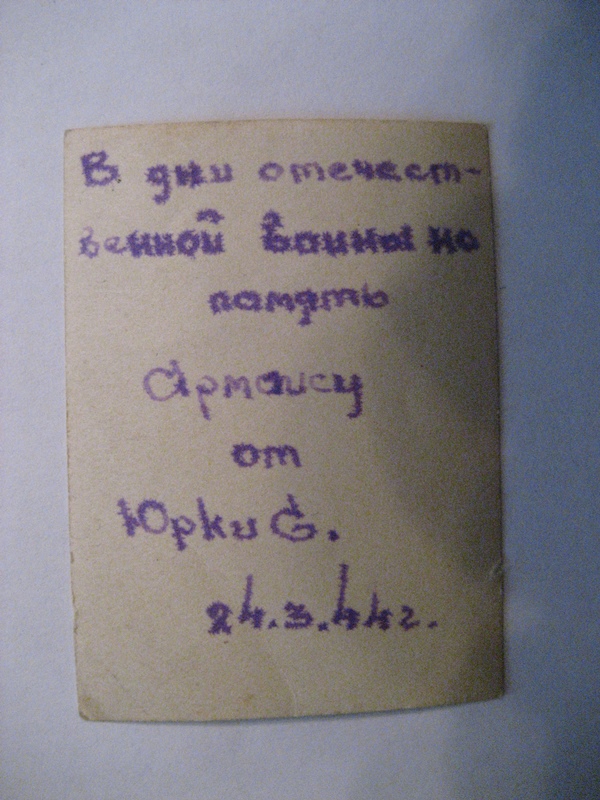 В дни отечест-
венной воины на
память
Армаису
от
Юрки С.
24.3.44г.